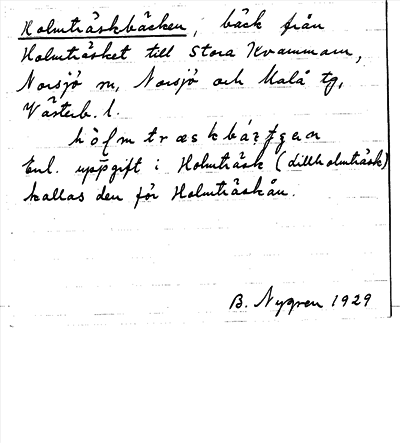 Holmträskbäcken, bäck från
Holmträsket till Stora Kvammarn,
Norsjö sn, Norsjö och Malå tg,
Västerb. l.
Enl. uppgift i Holmträsk (Lillholmträsk)
kallas den för Holmträskån.
B. Nygren 1929